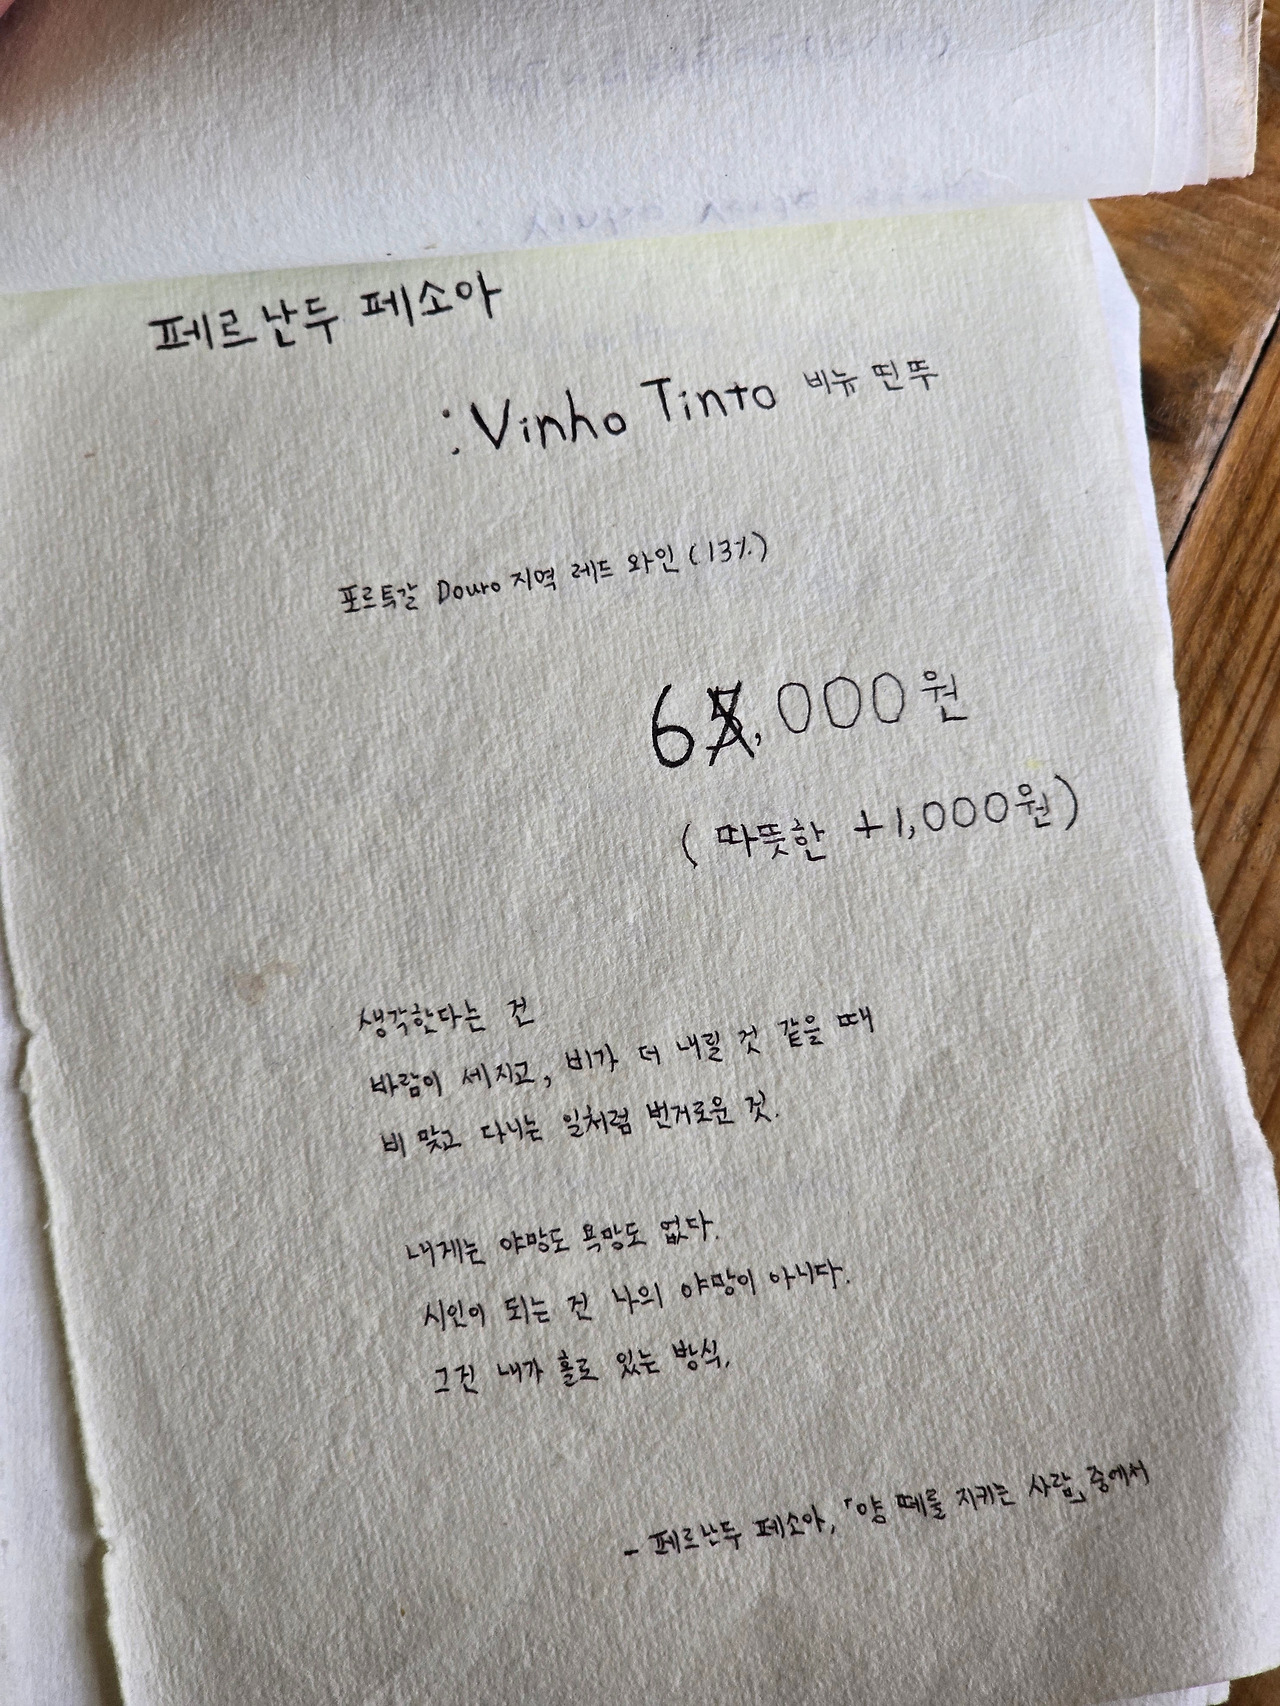 페르난두 페소아
: Vinho Tinto 비뉴 띤뚜
포르투갈 Douro 지역 레드 와인 (13%)
6,000원
(따뜻한 +1,000원)
생각한다는 건
바람이 세지고, 비가 더 내릴 것 같을 때
비 맞고 다니는 일처럼 번거로운 것.
내게는 야망도 욕망도 없다.
시인이 되는 건 나의 야망이 아니다.
그건 내가 홀로 있는 방식.
- 페르난두 페소아, 「양 떼를 지키는 사람」 중에서